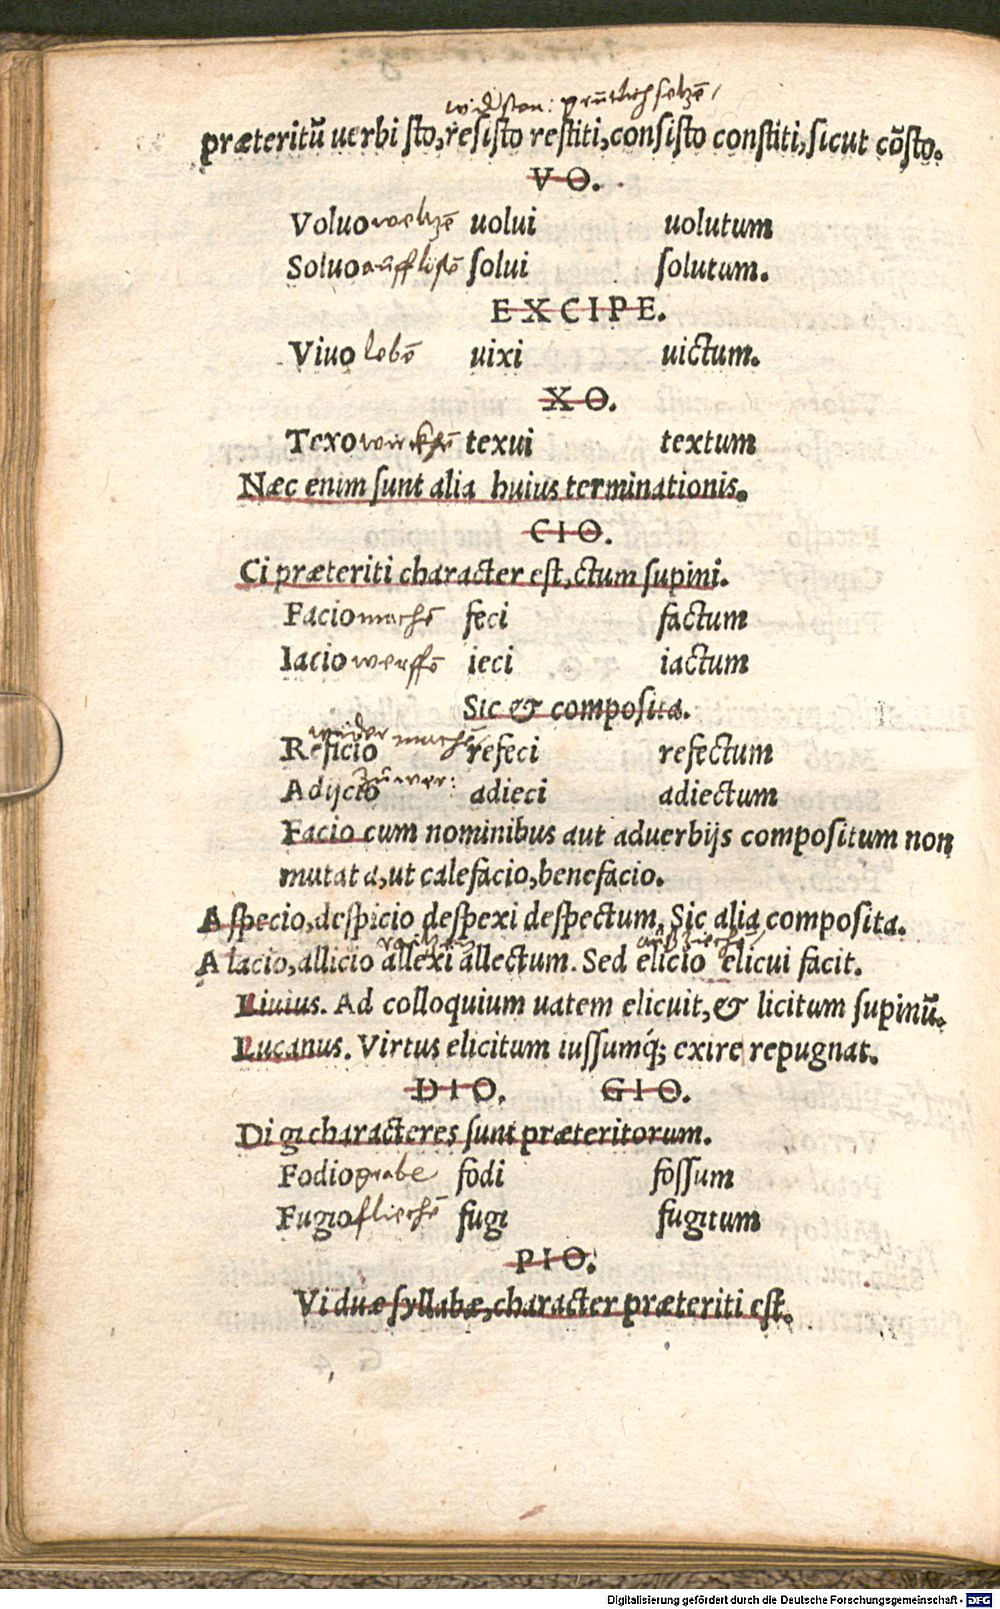 widstan:
præteritū uerbi sto, resisto restiti, consisto constiti, sicut cōsto.
V O.
Voluo weltzē uolui uolutum
Soluo aufflösē solui solutum.
EXCIPE.
Viuo lebē uixi uictum.
X O.
Texo wirckē texui textum
Næc enim sunt alia huius terminationis.
CIO.
Ci præteriti character est, ctum supini.
Facio machē feci factum
Iacio werffē ieci iactum
Sic & composita.
wider machē
Reficio refeci refectum
zuwer:
Adijcio adieci adiectum
Facio cum nominibus aut aduerbijs compositum non
mutat a, ut calefacio, benefacio.
A specio, despicio despexi despectum, Sic alia composita.
A lacio, allicio allexi allectum. Sed elicio elicui facit.
Liuius. Ad colloquium uatem elicuit, & licitum supinū.
Lucanus. Virtus elicitum iussumq́; exire repugnat.
DIO. GIO.
Di gi characteres sunt præteritorum.
Fodio grabe fodi fossum
Fugio fliechē fugi fugitum
PIO.
Vi duæ syllabæ, character præteriti est.
Digitalisierung gefördert durch die Deutsche Forschungsgemeinschaft - DFG